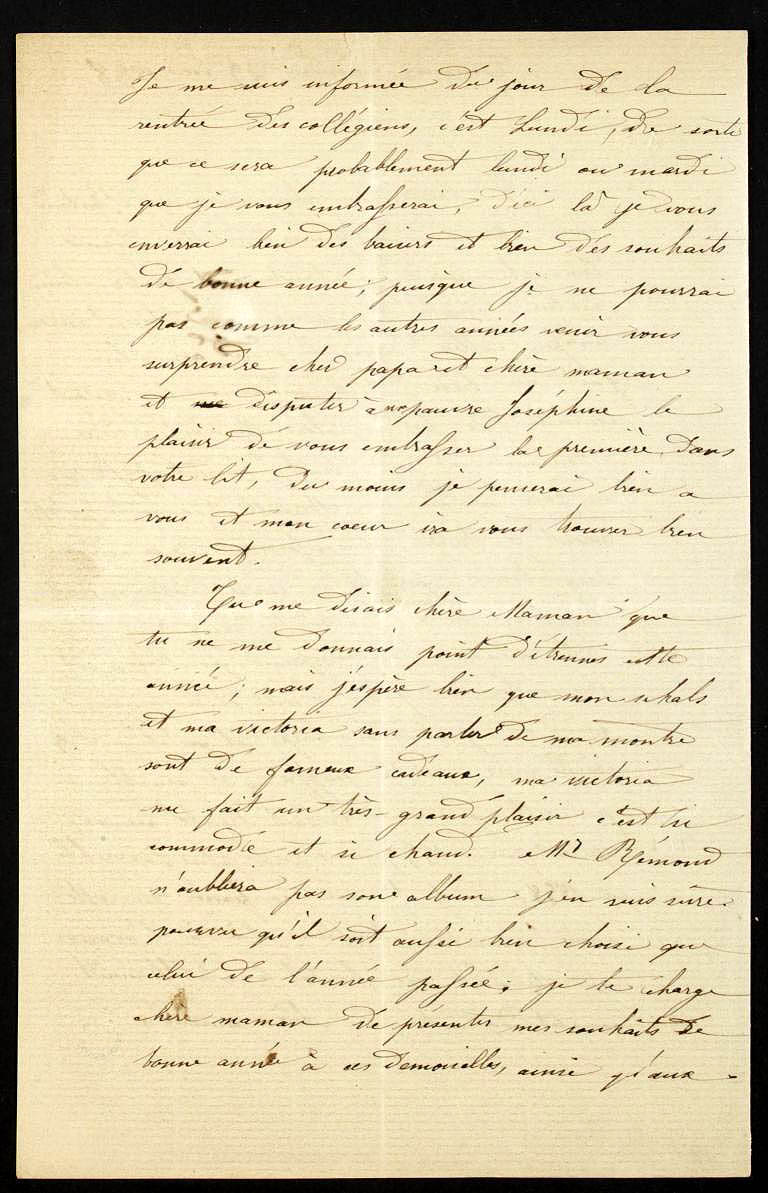 Je me suis informée du jour de la
rentrée des collégiens, c'est Lundi, de sorte
que ce sera probablement lundi ou mardi
que je vous embrasserai, d'ici là je vous
enverrai bien des baisers et bien des souhaits
de bonne année; puisque je ne pourrai
pas comme les autres années venir vous
surprendre cher papa et chère maman
et disputer à ma pauvre Joséphine le
plaisir de vous embrasser la première dans
votre lit, du moins je penserai bien a
vous et mon coeur ira vous trouver bien
souvent.
Tu me disais chère Maman que
tu ne me donnais point d'étrennes cette
année; mais j'éspère bien que mon schals
et ma victoria sans parler de ma montre
sont de fameux cadeaux, ma victoria
me fait un très-grand plaisir c'est si
commode et si chaud. Mr Rémond
n'oubliera pas son album j'en suis sûre
pourvu qu'il soit aussi bien choisi que
celui de l'année passée; je te charge
chère maman de présenter mes souhaits de
bonne année à ces demoiselles, ainsi qu'aux